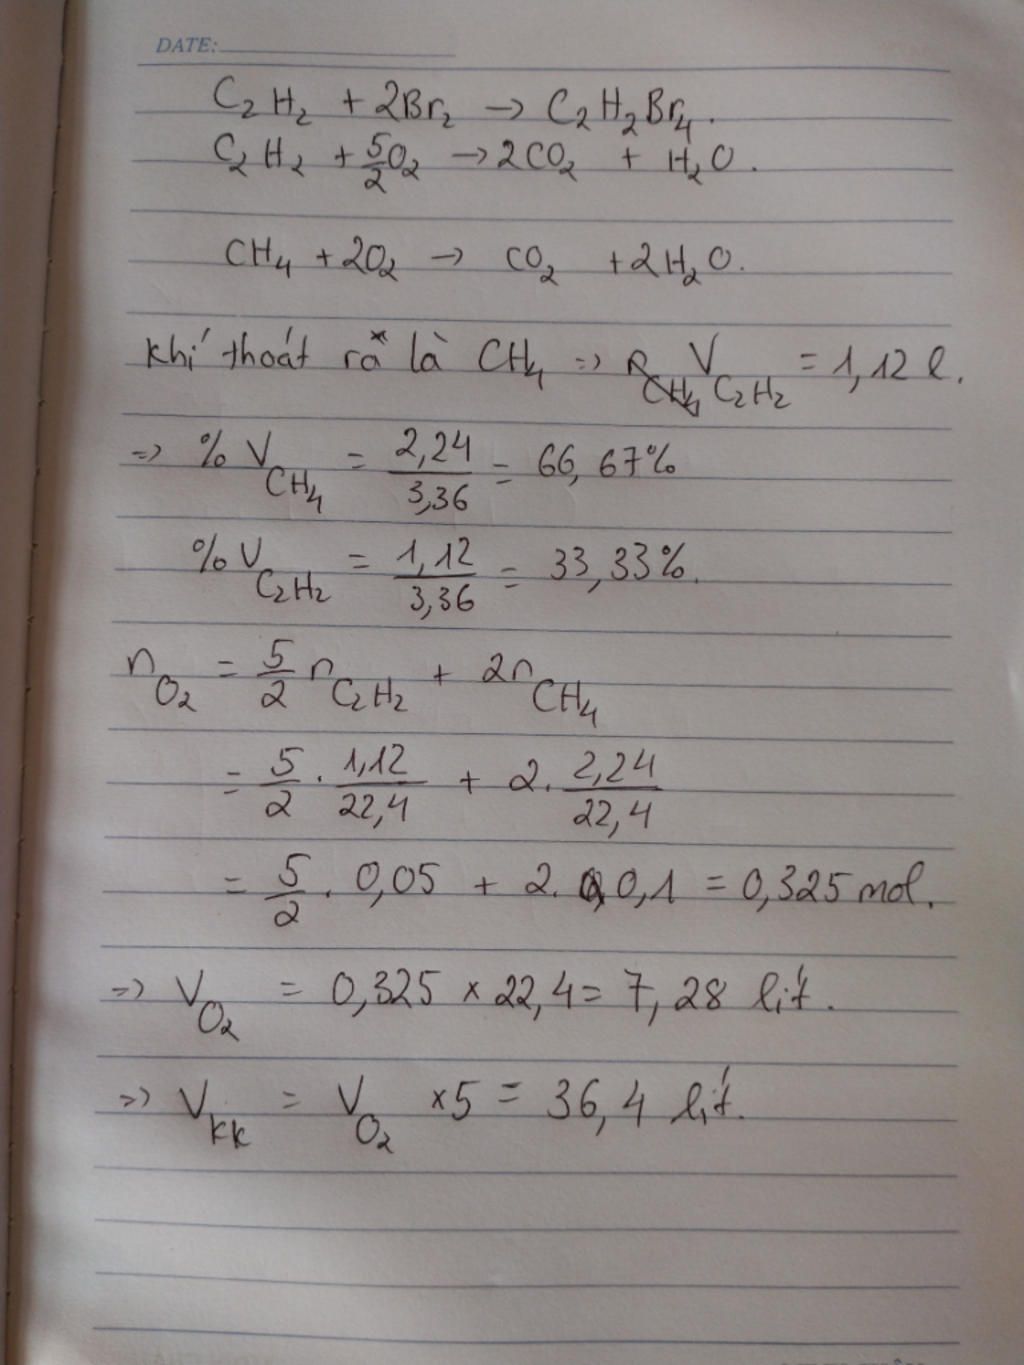 DATE:
C₂H₂ + 2Br₂ → C₂H₂Br₄.
C₂H₂ + 5/2 O₂ → 2CO₂ + H₂O.
CH₄ + 2O₂ → CO₂ + 2H₂O.
khí thoát ra là CH₄ => V C₂H₂ = 1,12 l.
=> % V CH₄ = 2,24/3,36 = 66,67%
% V C₂H₂ = 1,12/3,36 = 33,33%.
n O₂ = 5/2 n C₂H₂ + 2n CH₄
= 5/2 . 1,12/22,4 + 2. 2,24/22,4
= 5/2 . 0,05 + 2. 0,1 = 0,325 mol.
=> V O₂ = 0,325 × 22,4 = 7,28 lít.
=> V kk = V O₂ ×5 = 36,4 lít.